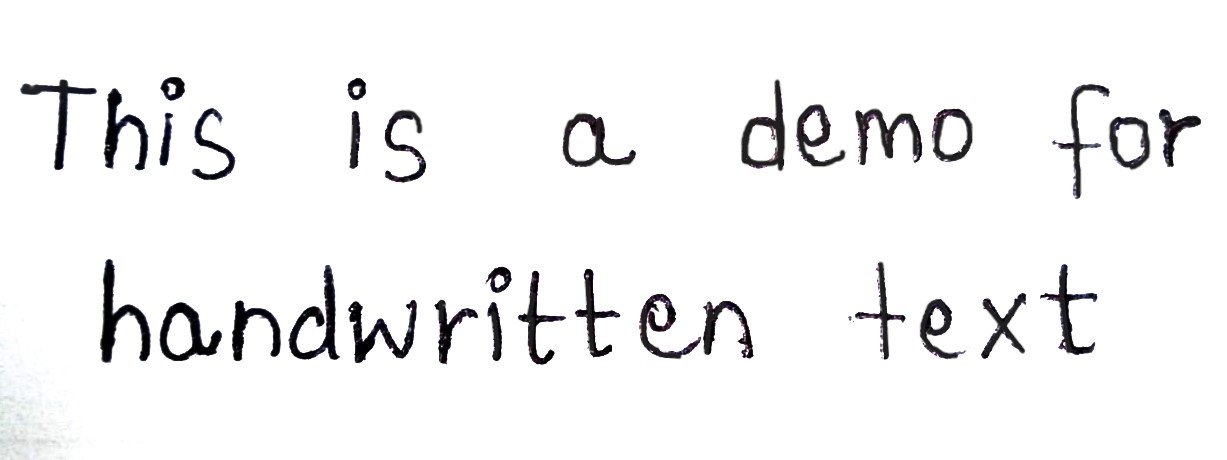 This is a demo for
handwritten text